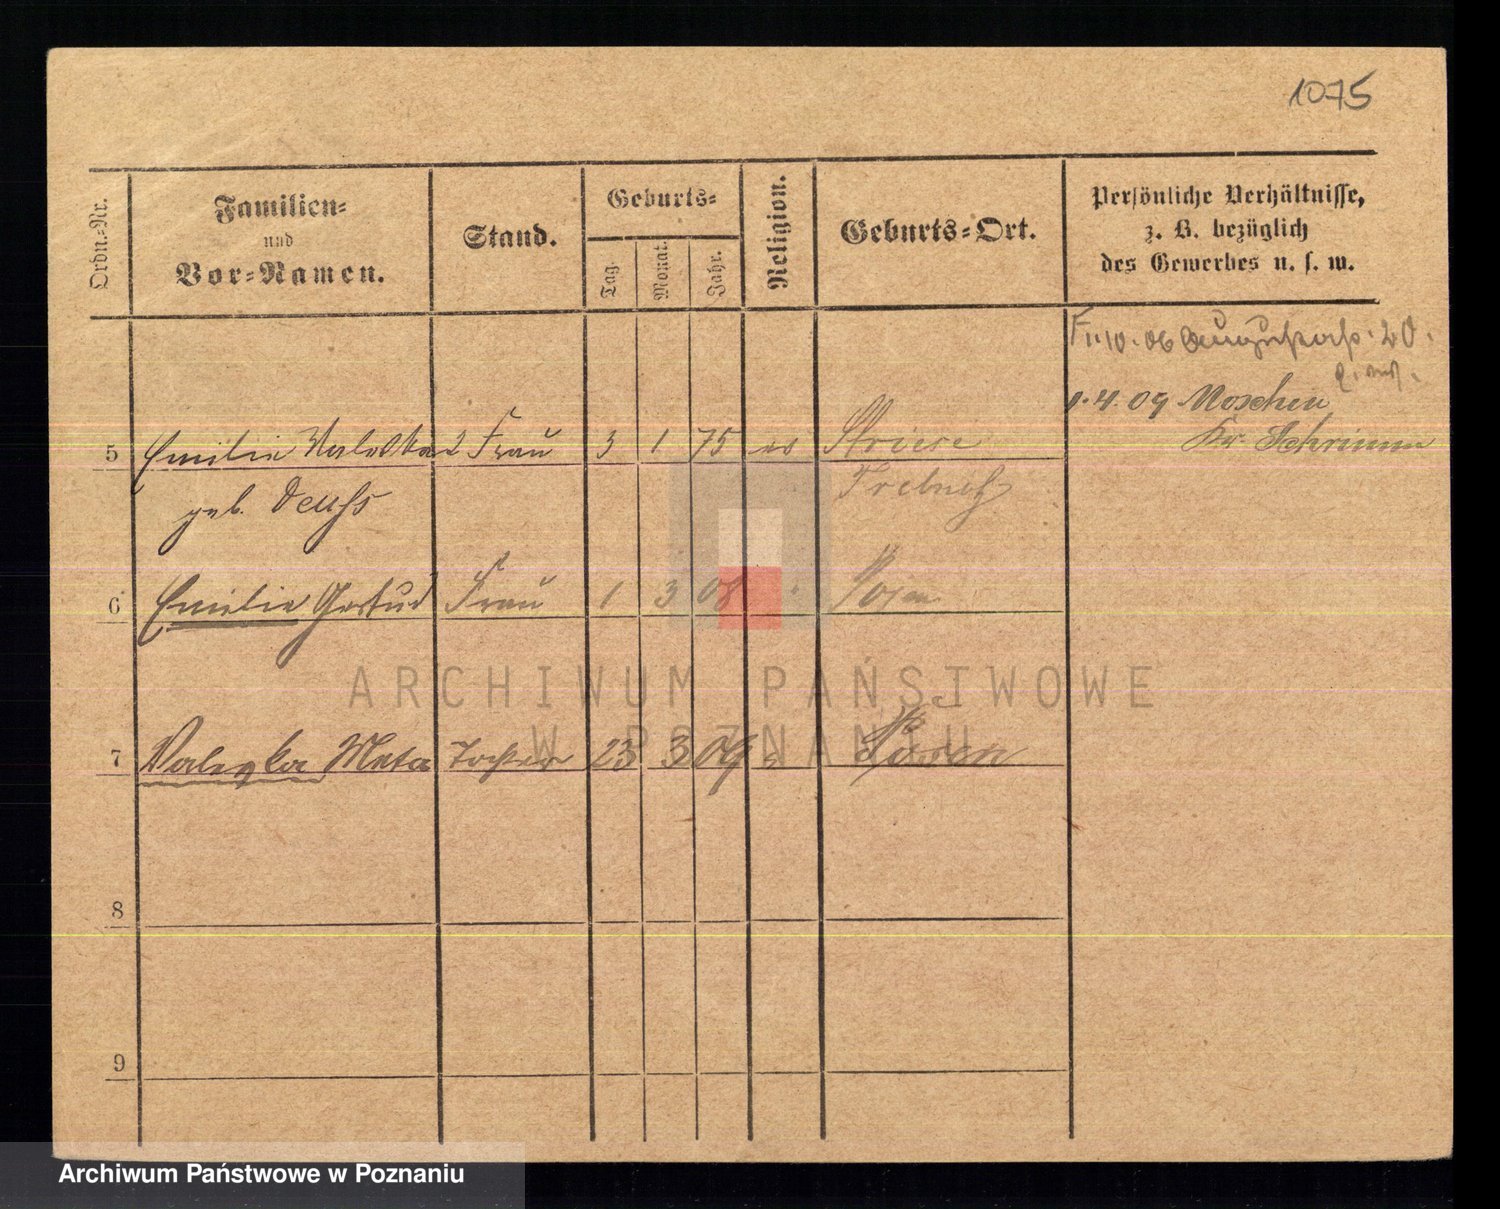 1075
Ordn.-Nr.
Familien-
und
Vor-Namen.
Stand.
Geburts-
Tag.
Monat.
Jahr.
Religion.
Geburts-Ort.
Persönliche Verhältnisse,
z. B. bezüglich
des Gewerbes u. s. w.
1.10.06 20.
1.4.09 Moschen
Kr. Schrimm
5 Emilie Valeska Frau 3 1 75 ev Striese
geb. Trebnitz
6 Emilie Gertrud Frau 1 3 08 Posen
7 Valeska Meta Tochter 23 3 09 Posen
8
9
ARCHIWUM PAŃSTWOWE
W POZNANIU
Archiwum Państwowe w Poznaniu